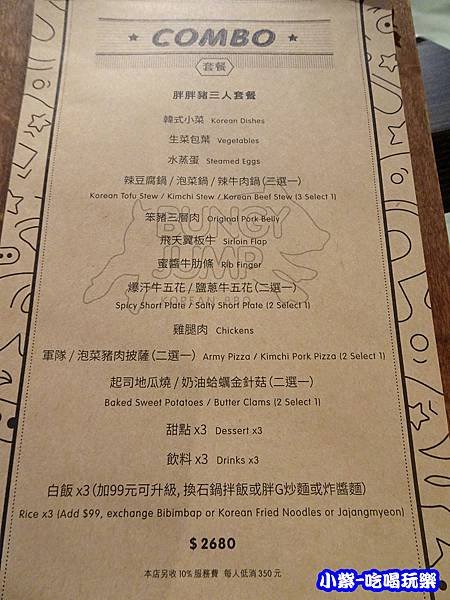 COMBO
套餐
胖胖豬三人套餐
韓式小菜 Korean Dishes
生菜包葉 Vegetables
水蒸蛋 Steamed Eggs
辣豆腐鍋 / 泡菜鍋 / 辣牛肉鍋 (三選一)
Korean Tofu Stew / Kimchi Stew / Korean Beef Stew (3 Select 1)
笨豬三層肉 Original Pork Belly
飛天翼板牛 Sirloin Flap
BUNGY
JUMP
KOREAN BBQ
蜜醬牛肋條 Rib Finger
爆汗牛五花 / 鹽蔥牛五花 (二選一)
Spicy Short Plate / Salty Short Plate (2 Select 1)
雞腿肉 Chickens
軍隊 / 泡菜豬肉披薩 (二選一) Army Pizza / Kimchi Pork Pizza (2 Select 1)
起司地瓜燒 / 奶油蛤蠣金針菇 (二選一)
Baked Sweet Potatoes / Butter Clams (2 Select 1)
甜點 x3 Dessert x3
飲料 x3 Drinks x3
白飯 x3 (加99元可升級, 換石鍋拌飯或胖G炒麵或炸醬麵)
Rice x3 (Add $99, exchange Bibimbap or Korean Fried Noodles or Jajangmyeon)
$ 2680
本店另收 10% 服務費 每人低消 350 元
小紫-吃喝玩樂